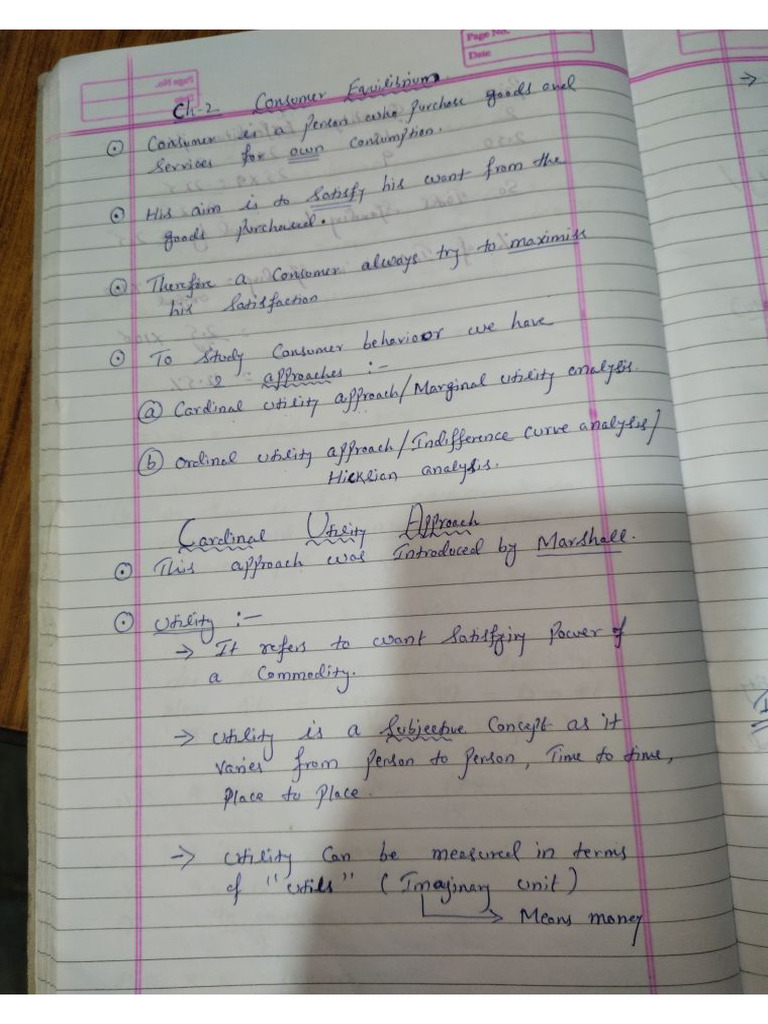 Page No.
Date
Ch-2 Consumer Equilibrium
Consumer is a person who purchase goods and
services for own consumption.
His aim is to satisfy his want from the
goods purchased.
Therefore a consumer always try to maximiss
his satisfaction
To study consumer behaviour we have
2 approaches :-
(a) Cardinal utility approach/Marginal utility analysis.
(b) Ordinal utility approach/Indifference curve analysis/
Hicksian analysis.
Cardinal Utility Approach
This approach was introduced by Marshall.
Utility :-
→ It refers to want satisfying power of
a commodity.
→ Utility is a subjective concept as it
varies from person to person, Time to time,
place to place.
→ Utility can be measured in terms
of "utils" (Imaginary unit)
→ Means money